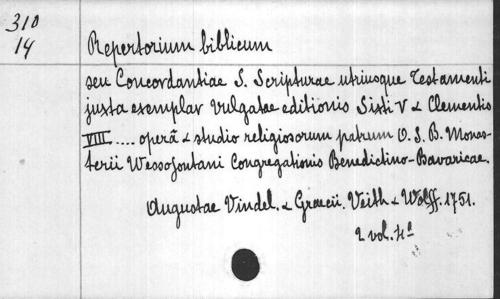 310
14
Repertorium biblicum
seu Concordantiae S. Scripturae utriusque Testamenti
juxta exemplar Vulgatae editionis Sixti V & Clementis
VIII .... operã & studio religiosorum patrum O. S. B. Monas-
terii Wessofontani Congregationis Benedictino-Bavaricae.
Augustae Vindel. & Graecii. Veith & Wolff. 1751.
2 vol. 4º